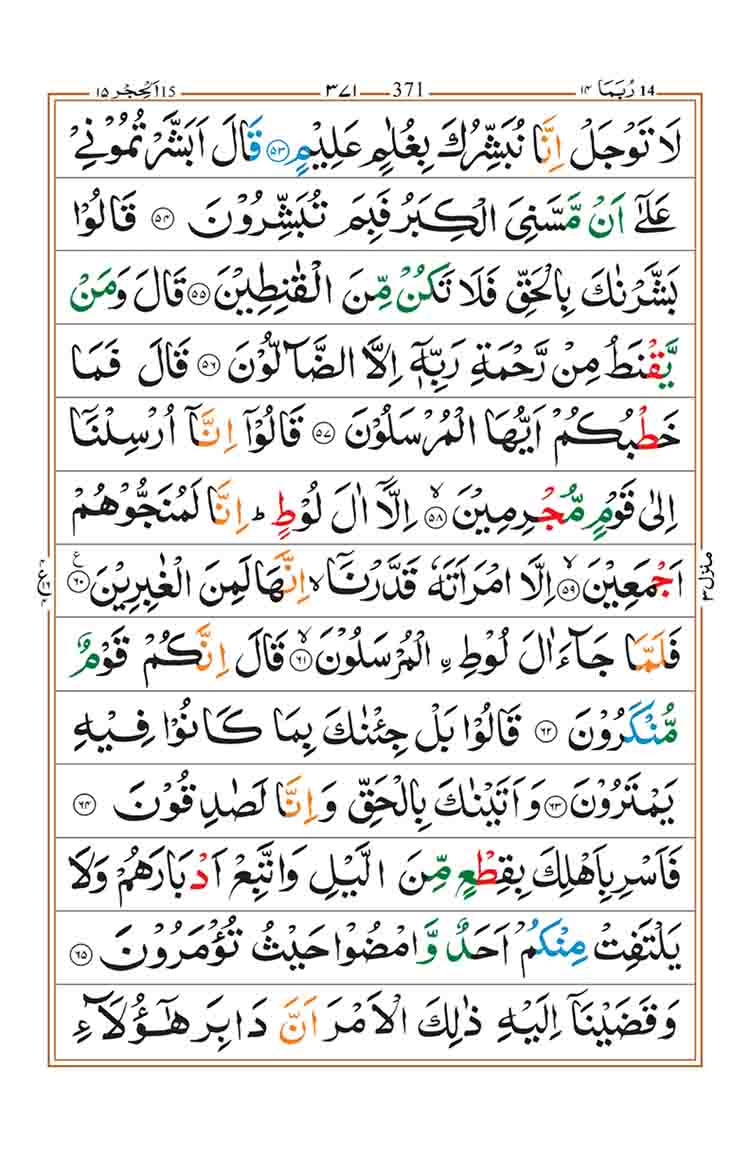 الحجر ١٥ 15 ٣٧١ 371 ربما ١٤ 14
لَا تَوْجَلْ اِنَّا نُبَشِّرُكَ بِغُلٰمٍ عَلِيْمٍ ﴿۵۳﴾ قَالَ اَبَشَّرْتُمُوْنِيْ
عَلٰۤى اَنْ مَّسَّنِيَ الْكِبَرُ فَبِمَ تُبَشِّرُوْنَ ﴿۵۴﴾ قَالُوْا
بَشَّرْنٰكَ بِالْحَقِّ فَلَا تَكُنْ مِّنَ الْقٰنِطِيْنَ ﴿۵۵﴾ قَالَ وَمَنْ
يَّقْنَطُ مِنْ رَّحْمَةِ رَبِّهٖۤ اِلَّا الضَّآلُّوْنَ ﴿۵۶﴾ قَالَ فَمَا
خَطْبُكُمْ اَيُّهَا الْمُرْسَلُوْنَ ﴿۵۷﴾ قَالُوْۤا اِنَّاۤ اُرْسِلْنَاۤ
اِلٰى قَوْمٍ مُّجْرِمِيْنَ ۙ﴿۵۸﴾ اِلَّاۤ اٰلَ لُوْطٍ ؕ اِنَّا لَمُنَجُّوْهُمْ
اَجْمَعِيْنَ ۙ﴿۵۹﴾ اِلَّا امْرَاَتَهٗ قَدَّرْنَاۤ ۙ اِنَّهَا لَمِنَ الْغٰبِرِيْنَ ﴿۶۰﴾ ع
فَلَمَّا جَآءَ اٰلَ لُوْطِ ۨ الْمُرْسَلُوْنَ ۙ﴿۶۱﴾ قَالَ اِنَّكُمْ قَوْمٌ
مُّنْكَرُوْنَ ﴿۶۲﴾ قَالُوْا بَلْ جِئْنٰكَ بِمَا كَانُوْا فِيْهِ
يَمْتَرُوْنَ ﴿۶۳﴾ وَاَتَيْنٰكَ بِالْحَقِّ وَاِنَّا لَصٰدِقُوْنَ ﴿۶۴﴾
فَاَسْرِ بِاَهْلِكَ بِقِطْعٍ مِّنَ الَّيْلِ وَاتَّبِعْ اَدْبَارَهُمْ وَلَا
يَلْتَفِتْ مِنْكُمْ اَحَدٌ وَّامْضُوْا حَيْثُ تُؤْمَرُوْنَ ﴿۶۵﴾
وَقَضَيْنَاۤ اِلَيْهِ ذٰلِكَ الْاَمْرَ اَنَّ دَابِرَ هٰٓؤُلَآءِ
منزل ٣